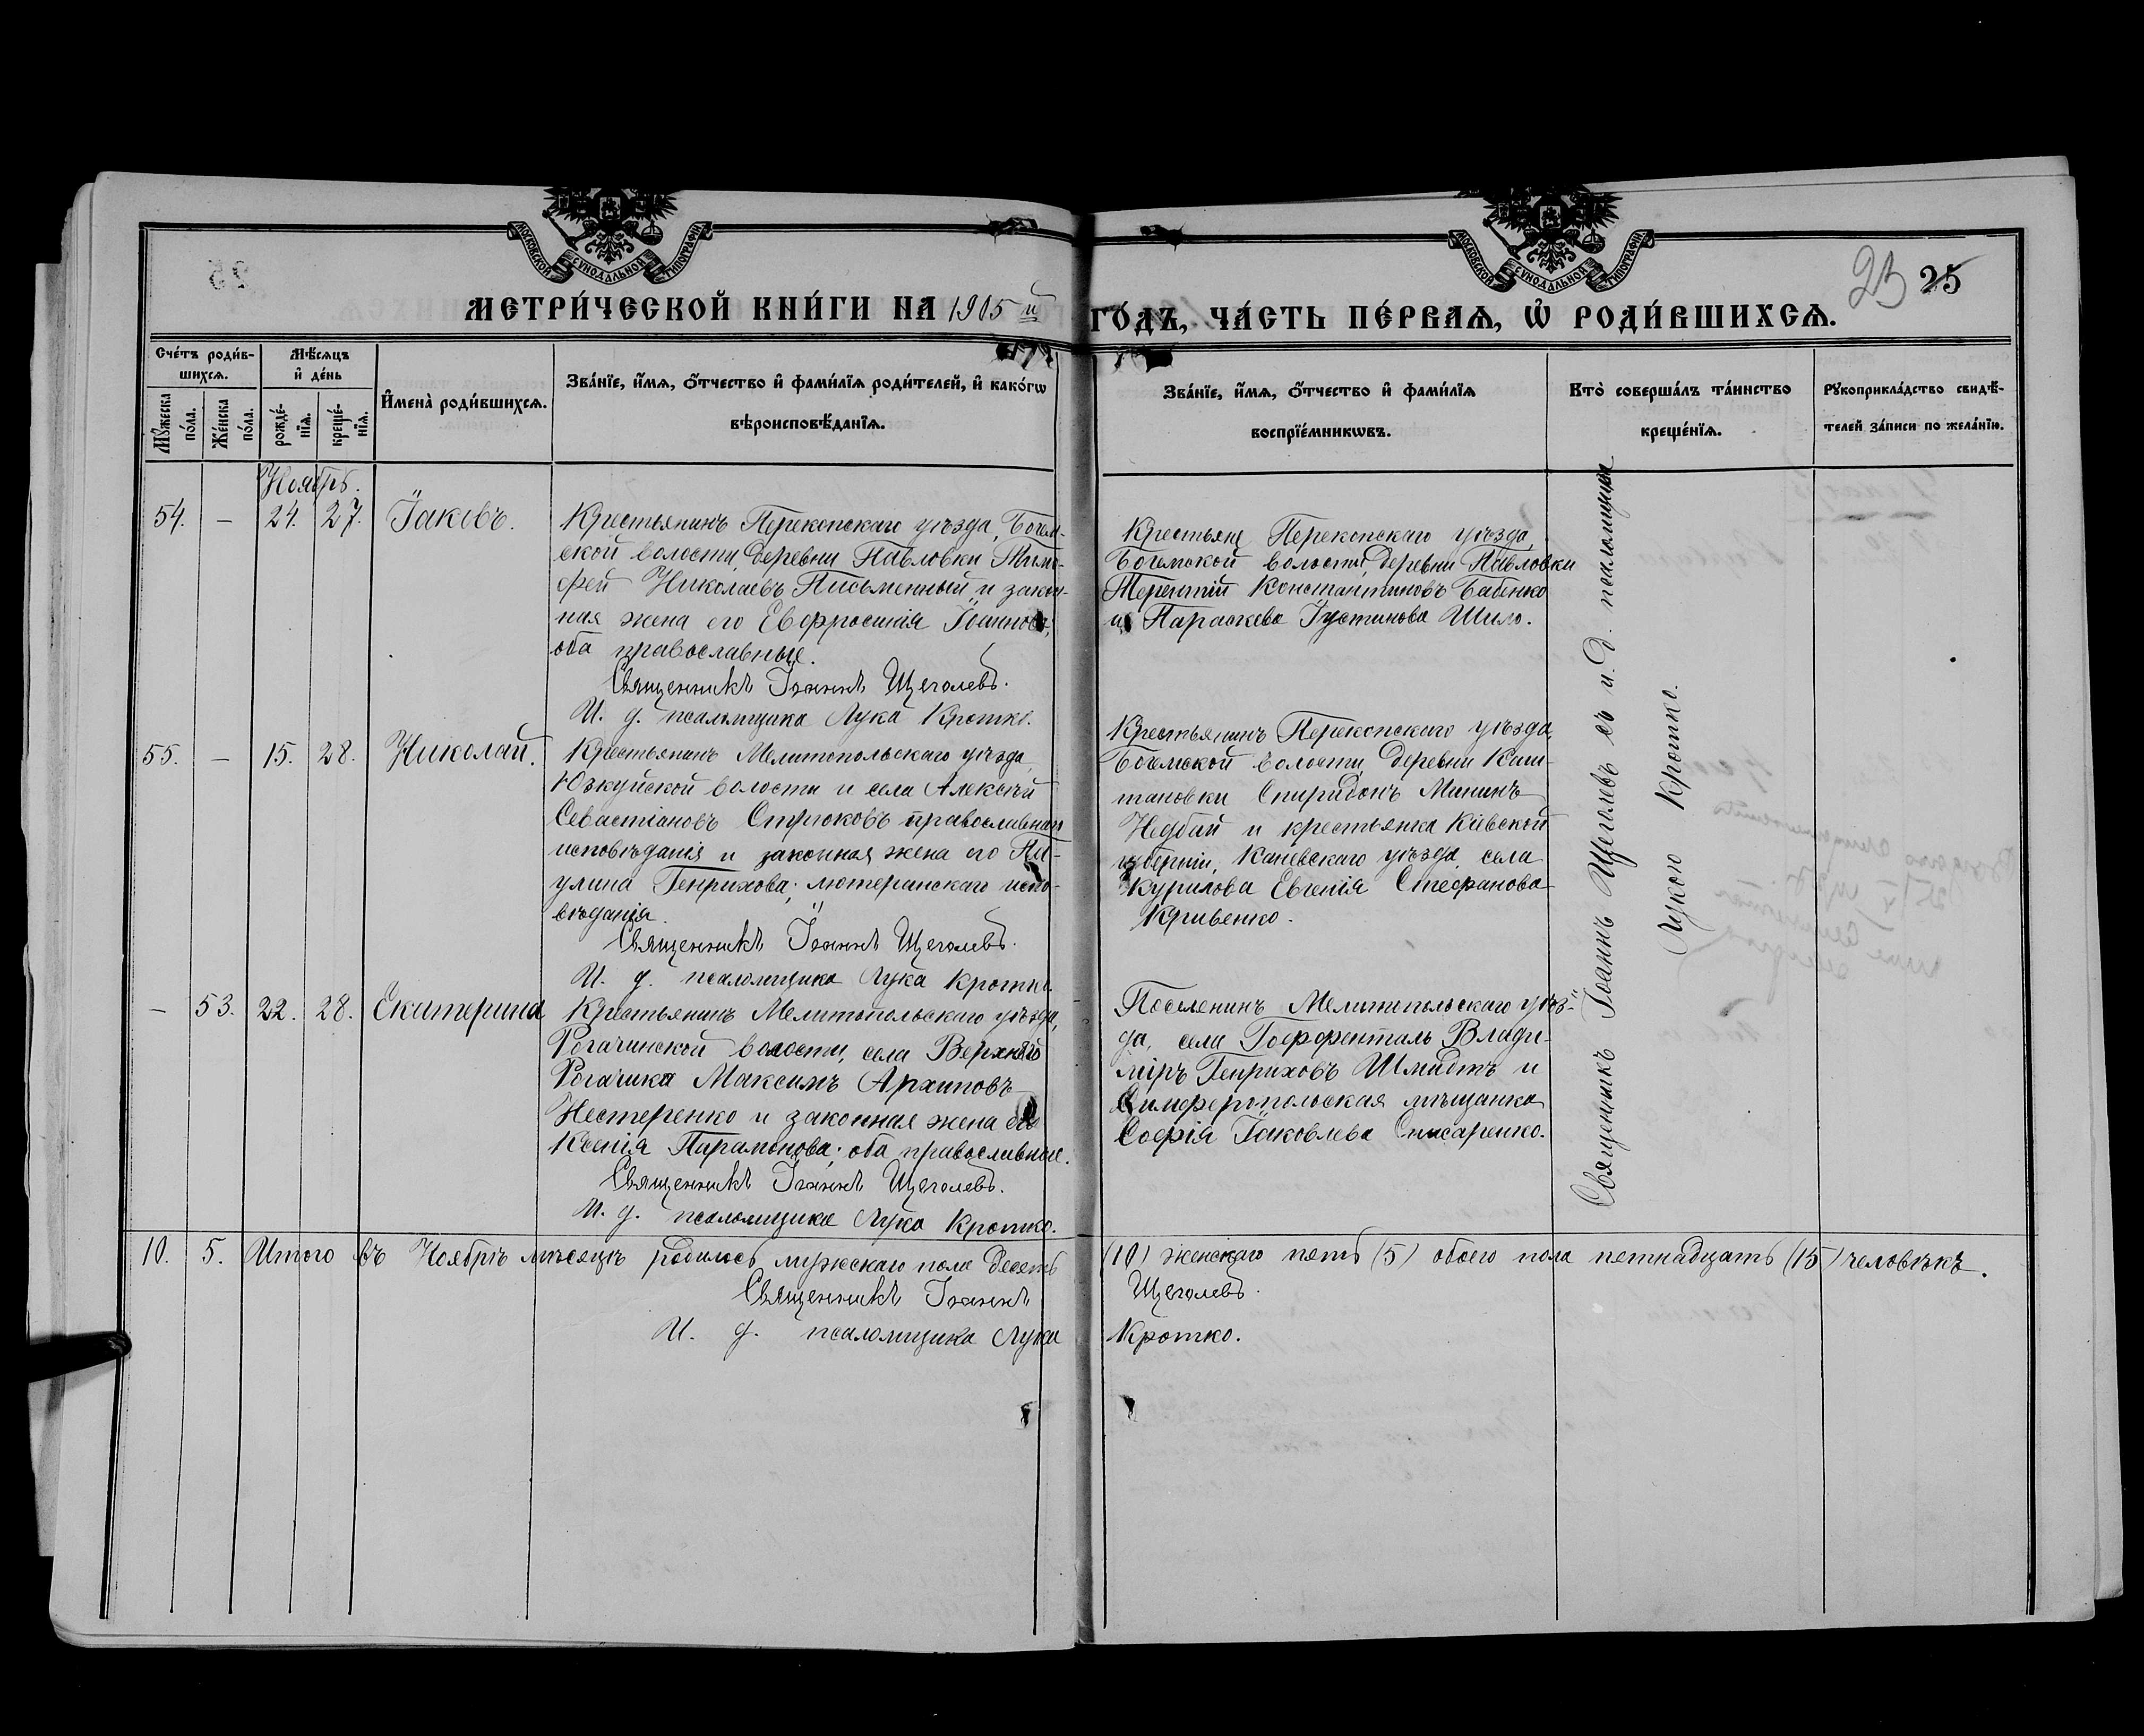 МОСКОВСКОЙ СУНОДАЛЬНОЙ ТИПОГРАФІИ
МОСКОВСКОЙ СУНОДАЛЬНОЙ ТИПОГРАФІИ
23 25
МЕТРИ́ЧЕСКОЙ КНИ́ГИ НА 1905 й
ГО́ДЪ, ЧА́СТЬ ПЕ́РВАѦ, Ѽ РОДИ́ВШИХСѦ.
Сче́тъ роди́в-
шихсѧ.
Мѣ́сяцъ
и҆ де́нь
Мꙋ́жеска по́ла.
Же́нска по́ла.
рожде́-
нїѧ.
креще́-
нїѧ.
И҆мена̀ роди́вшихсѧ.
Зва́нїе, и҆́мѧ, ѻ҆́тчество и҆ фами́лїѧ роди́телей, и҆ како́гѡ
вѣроисповѣ́данїѧ.
Зва́нїе, и҆́мѧ, ѻ҆́тчество и҆ фами́лїѧ
воспрїе́мникѡвъ.
Кто̀ соверша́лъ та́инство
креще́нїѧ.
Рꙋкоприкла́дство свидѣ́-
телей за́писи по жела́нїю.
Ноябрь.
54. — 24. 27. Іаковъ.
Крестьянинъ Перекопскаго уѣзда, Богем-
ской волости, деревни Павловки Тимо-
фей Николаевъ Письменный и закон-
ная жена его Евфросинія Іоаннова;
оба православные.
Священникъ Іоаннъ Щеголевъ.
И. д. псаломщика Лука Кротко.
Крестьяне Перекопскаго уѣзда,
Богемской волости, деревни Павловки
Терентій Константиновъ Бабенко
и Параскева Іустинова Шило.
55. — 15. 28. Николай.
Крестьянинъ Мелитопольскаго уѣзда,
Юзкуйской волости и села Алексѣй
Севастіановъ Стрюковъ православнаго
исповѣданія и законная жена его Па-
улина Генрихова; лютеранскаго испо-
вѣданія.
Священникъ Іоаннъ Щеголевъ.
И. д. псаломщика Лука Кротко.
Крестьянинъ Перекопскаго уѣзда,
Богемской волости, деревни Каш-
тановки Спиридонъ Мининъ
Недбай и крестьянка Кіевской
губерніи, Каневскаго уѣзда, села
Курилова Евгенія Стефанова
Кривенко.
— 53. 22. 28. Екатерина
Крестьянинъ Мелитопольскаго уѣзда,
Рогачинской волости, села Верхняго
Рогачика Максимъ Архиповъ
Нестеренко и законная жена его
Ксенія Парамонова; оба православные.
Священникъ Іоаннъ Щеголевъ.
И. д. псаломщика Лука Кротко.
Поселянинъ Мелитопольскаго уѣз-
да, села Гоффенталь Влади-
міръ Генриховъ Шмидтъ и
Симферопольская мѣщанка
Софія Іаковлева Списаренко.
Священникъ Іоаннъ Щеголевъ съ и. д. псаломщика
Лукою Кротко.
10. 5. Итого въ Ноябрѣ мѣсяцѣ родилось мужскаго пола десять (10) женскаго пять (5) обоего пола пятнадцать (15) человѣкъ.
Священникъ Іоаннъ Щеголевъ.
И. д. псаломщика Лука Кротко.